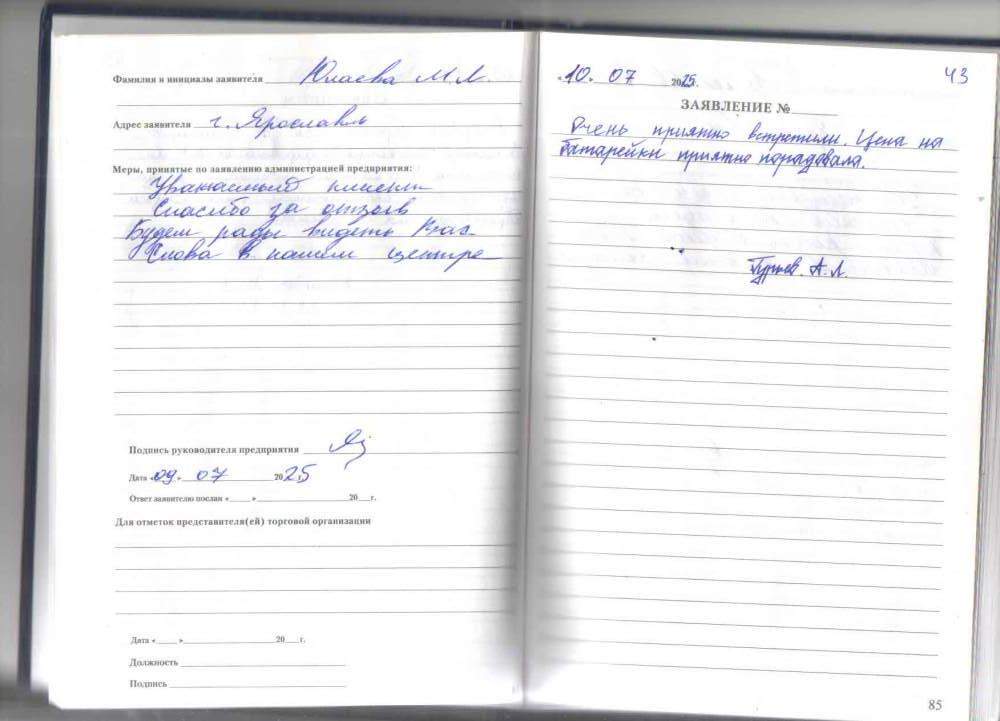 Фамилия и инициалы заявителя Юлаева М.Л.
Адрес заявителя г. Ярославль
Меры, принятые по заявлению администрацией предприятия:
Уважаемый клиент
Спасибо за отзыв
Будем рады видеть Вас
Снова в нашем центре
Подпись руководителя предприятия
Дата «09» 07 2025
Ответ заявителю послан «___» ___ 20__г.
Для отметок представителя(ей) торговой организации
Дата «___» ___ 20__г.
Должность
Подпись
«10» 07 2025г. 43
ЗАЯВЛЕНИЕ №
Очень приятно встретили. Цена на
батарейки приятно порадовала.
А.Л.
85